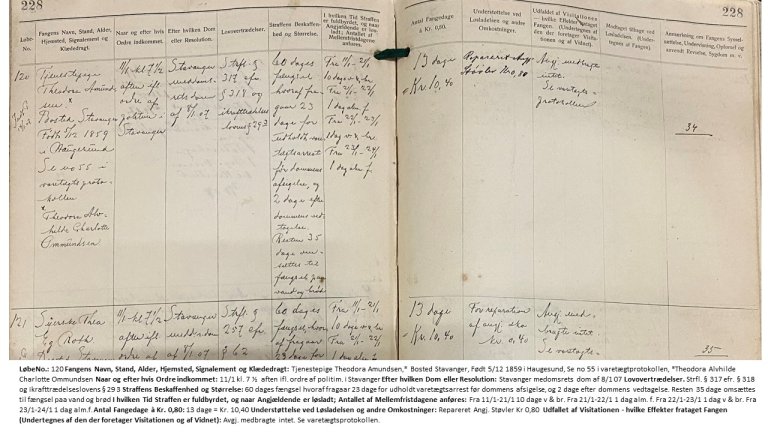 228
228
Løbe-
No.
Fangens Navn, Stand, Alder,
Hjemsted, Signalement og
Klædedragt.
Naar og efter hvis
Ordre indkommet.
Efter hvilken Dom
eller Resolution.
Lovovertrædelser.
Straffens Beskaffen-
hed og Størrelse.
I hvilken Tid Straffen
er fuldbyrdet, og naar
Angjældende er løs-
ladt; Antallet af
Mellemfristdagene
anføres.
Antal Fangedage
à Kr. 0,80:
Understøttelse ved
Løsladelsen og andre
Omkostninger.
Udfaldet af Visitationen
— hvilke Effekter
frataget Fangen.
(Undertegnes af den
der foretager Visitationen
og af Vidnet).
Modtaget tilbage ved
Løsladelsen. (Under-
tegnes af Fangen).
Anmærkning om Fangens Syssel-
sættelse, Undervisning, Opførsel og
anvendt Revselse, Sygdom m. v.
120
Tjenestepige
Theodora Amund-
sen. *
Bosted Stavanger
Født 5/12 1859
i Haugesund
Se no 55 i
varetægts proto-
kollen
* Theodora Alv-
hilde Charlotte
Ommundsen
11/1 kl. 7 1/2
aften ifl.
ordre af
politim. i
Stavanger
Stavanger
meddoms-
rets dom
af 8/1 07
Strfl. §
317 efr.
§ 318 og
ikrafttrædelses-
lovens § 29 3
60 dages
fængsel
hvoraf fra-
gaar 23
dage for
udholdt vare-
tægtsarrest
før dommens
afsigelse, og
2 dage efter
dommens ved-
tagelse.
Resten 35
dage om-
sættes til
fængsel paa
vand og brød
Fra 11/1 - 21/1
10 dage v. & br.
Fra 21/1 - 22/1
1 dag alm f.
Fra 22/1 - 23/1
1 dag v. & br.
Fra 23/1 - 24/1
1 dag alm. f.
13 dage
= Kr. 10,40
Repareret Angj.
Støvler Kr 0,80
Angj. medbragte
intet.
Se varetægts-
protokollen
34
121
Sjerske Thea
Eg Roth
11/1 kl 7 1/2
aften ifl
Stavanger
meddoms-
Strfl. §
257 efr.
§ 62
60 dages
fængsel, hvor-
af fragaar
Fra 11/1 - 21/1
10 dage v. & br.
Fra 21/1 - 22/1
13 dage
= Kr. 10,40
For reparation
af angj. sko
kr. 0,40
Angj. med-
bragte intet.
Se varetægts-
35
LøbeNo.: 120 Fangens Navn, Stand, Alder, Hjemsted, Signalement og Klædedragt: Tjenestepige Theodora Amundsen,* Bosted Stavanger, Født 5/12 1859 i Haugesund, Se no 55 i varetægtprotokollen, *Theodora Alvhilde
Charlotte Ommundsen Naar og efter hvis Ordre indkommet: 11/1 kl. 7 ½ aften ifl. ordre af politim. i Stavanger Efter hvilken Dom eller Resolution: Stavanger medomsrets dom af 8/107 Lovovertrædelser. Strfl. § 317 efr. § 318
og ikrafttrædelseslovens § 29 3 Straffens Beskaffenhed og Størrelse: 60 dages fængsel hvoraf fragaar 23 dage for udholdt varetægtsarrest før dommens afsigelse, og 2 dage efter dommens vedtagelse. Resten 35 dage omsættes
til fængsel paa vand og brød I hvilken Tid Straffen er fuldbyrdet, og naar Angjældende er løsladt; Antallet af Mellemfristdagene anføres: Fra 11/1-21/1 10 dag v & br. Fra 21/1-22/1 1 dag alm. f. Fra 22/1-23/1 1 dag v & br. Fra
23/1-24/1 1 dag alm.f. Antal Fangedage à Kr. 0,80: 13 dage = Kr. 10,40 Understøttelse ved Løsladelsen og andre Omkostninger: Repareret Angj. Støvler Kr 0,80 Udfallet af Visitationen - hvilke Effekter frataget Fangen
(Undertegnes af den der foretager Visitationen og af Vidnet): Angj. medbragte intet. Se varetægtsprotokollen.